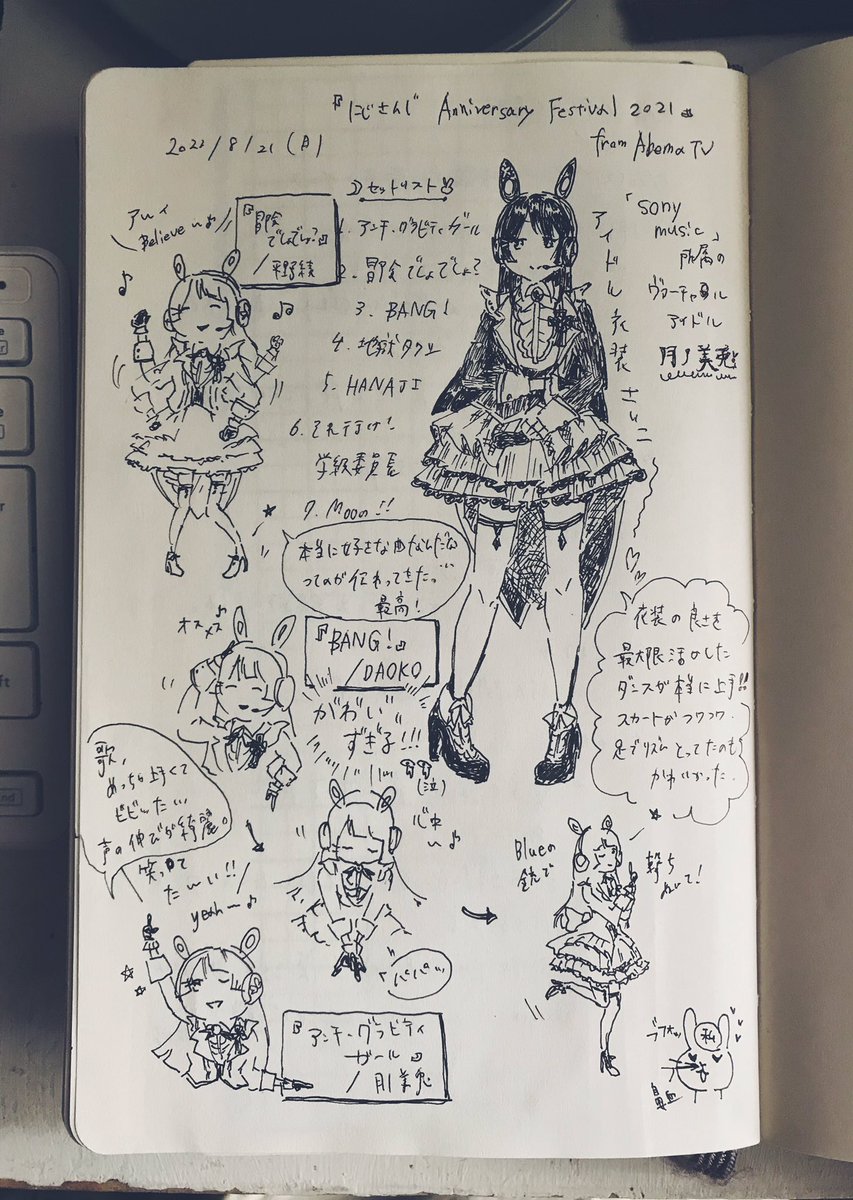 『にじさんじ Anniversary Festival 2021』
from Abema TV
2022/8/21(月)
アレイ
Believe〜♪
『冒険
でしょでしょ?』
/平野綾
セットリスト
1. アンチ・グラビティ・ガール
2. 冒険でしょでしょ?
3. BANG!
4. 地獄タクシー
5. HANAJI
6. それ行け!
学級委員長
7. Moonの!!
アイドル衣装さいこ〜
「sony
music」
所属の
ヴァーチャル
アイドル
月ノ美兎
本当に好きな曲なんだな
ってのが伝わってきた…
最高!
オスメス♪
『BANG!』
/DAOKO
がわい"い"
すぎ子!!!
(泣)
心中
〜♪
衣装の良さを
最大限活かした
ダンスが本当に上手!!
スカートがフワフワ.
足でリズムとってたのも
かわいかった.
歌、
めっちゃ上手くて
ビビッた…
声の伸びが綺麗。
笑って
た〜い!!
yeah〜♪
Blueの
銃で
撃ち
ぬいて!
"バババッ"
『アンチ・グラビティ
ガール』
/月ノ美兎
ブフォッ
私
鼻血